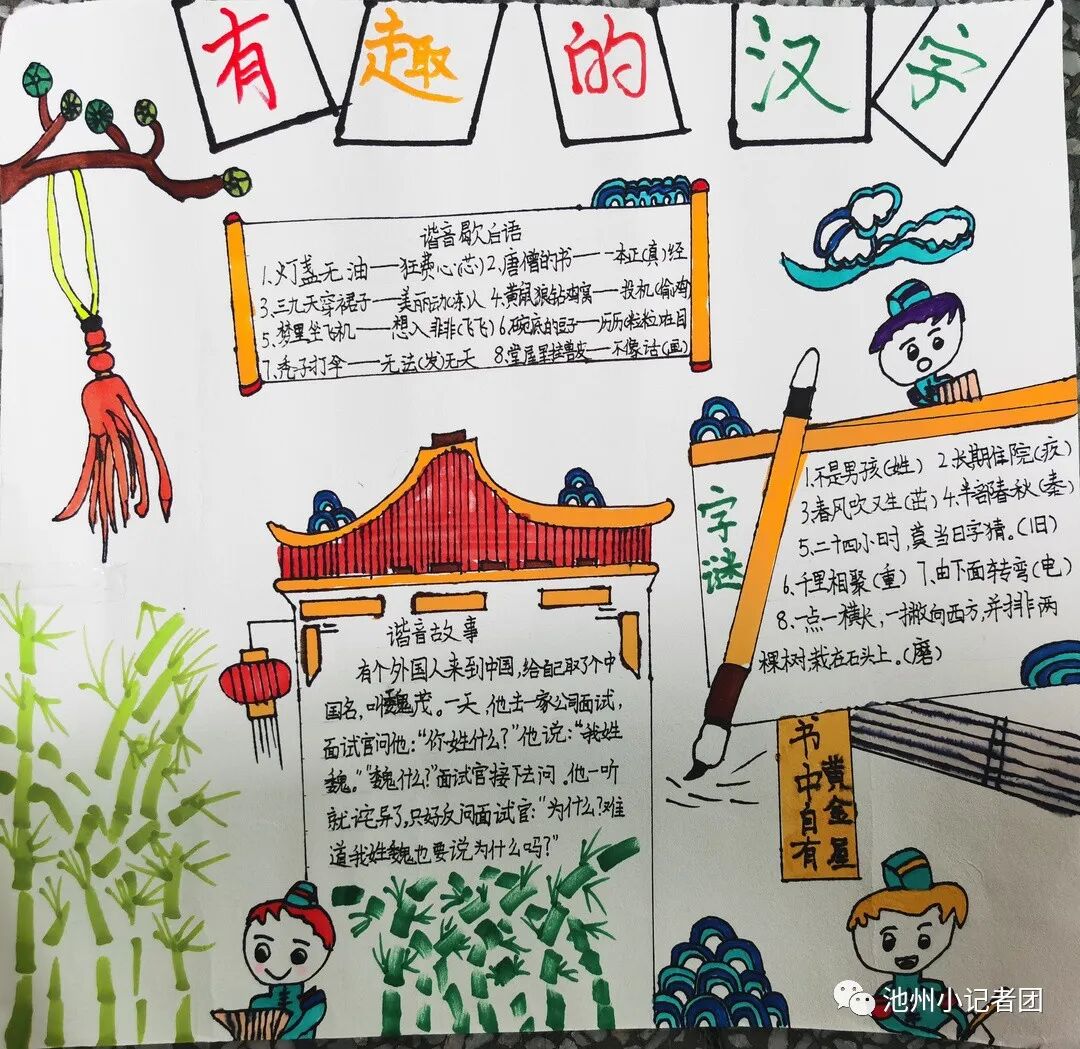 有趣的汉字
谐音歇后语
1.灯盏无油——枉费心(芯) 2.唐僧的书——一本正(真)经
3.三九天穿裙子——美丽动(冻)人 4.黄鼠狼钻鸡窝——投机(偷鸡)
5.梦里坐飞机——想入非非(飞飞) 6.碗底的豆子——历历(粒粒)在目
7.秃子打伞——无法(发)无天 8.堂屋里挂兽皮——不像话(画)
字谜
1.不是男孩(姓) 2.长期住院(疚)
3.春风吹又生(茁) 4.半部春秋(秦)
5.二十四小时,莫当日字猜。(旧)
6.千里相聚(重) 7.由下面转弯(电)
8.一点一横长,一撇向西方,并排非两
棵树,栽在石头上。(磨)
谐音故事
有个外国人来到中国,给自己取了个中
国名,叫魏茂。一天,他去一家公司面试,
面试官问他:“你姓什么?”他说:“我姓
魏。”“魏什么?”面试官接下去问。他一听
就诧异了,只好反问面试官:“为什么?难
道我姓魏也要说为什么吗?”
书中自有
黄金屋
池州小记者团